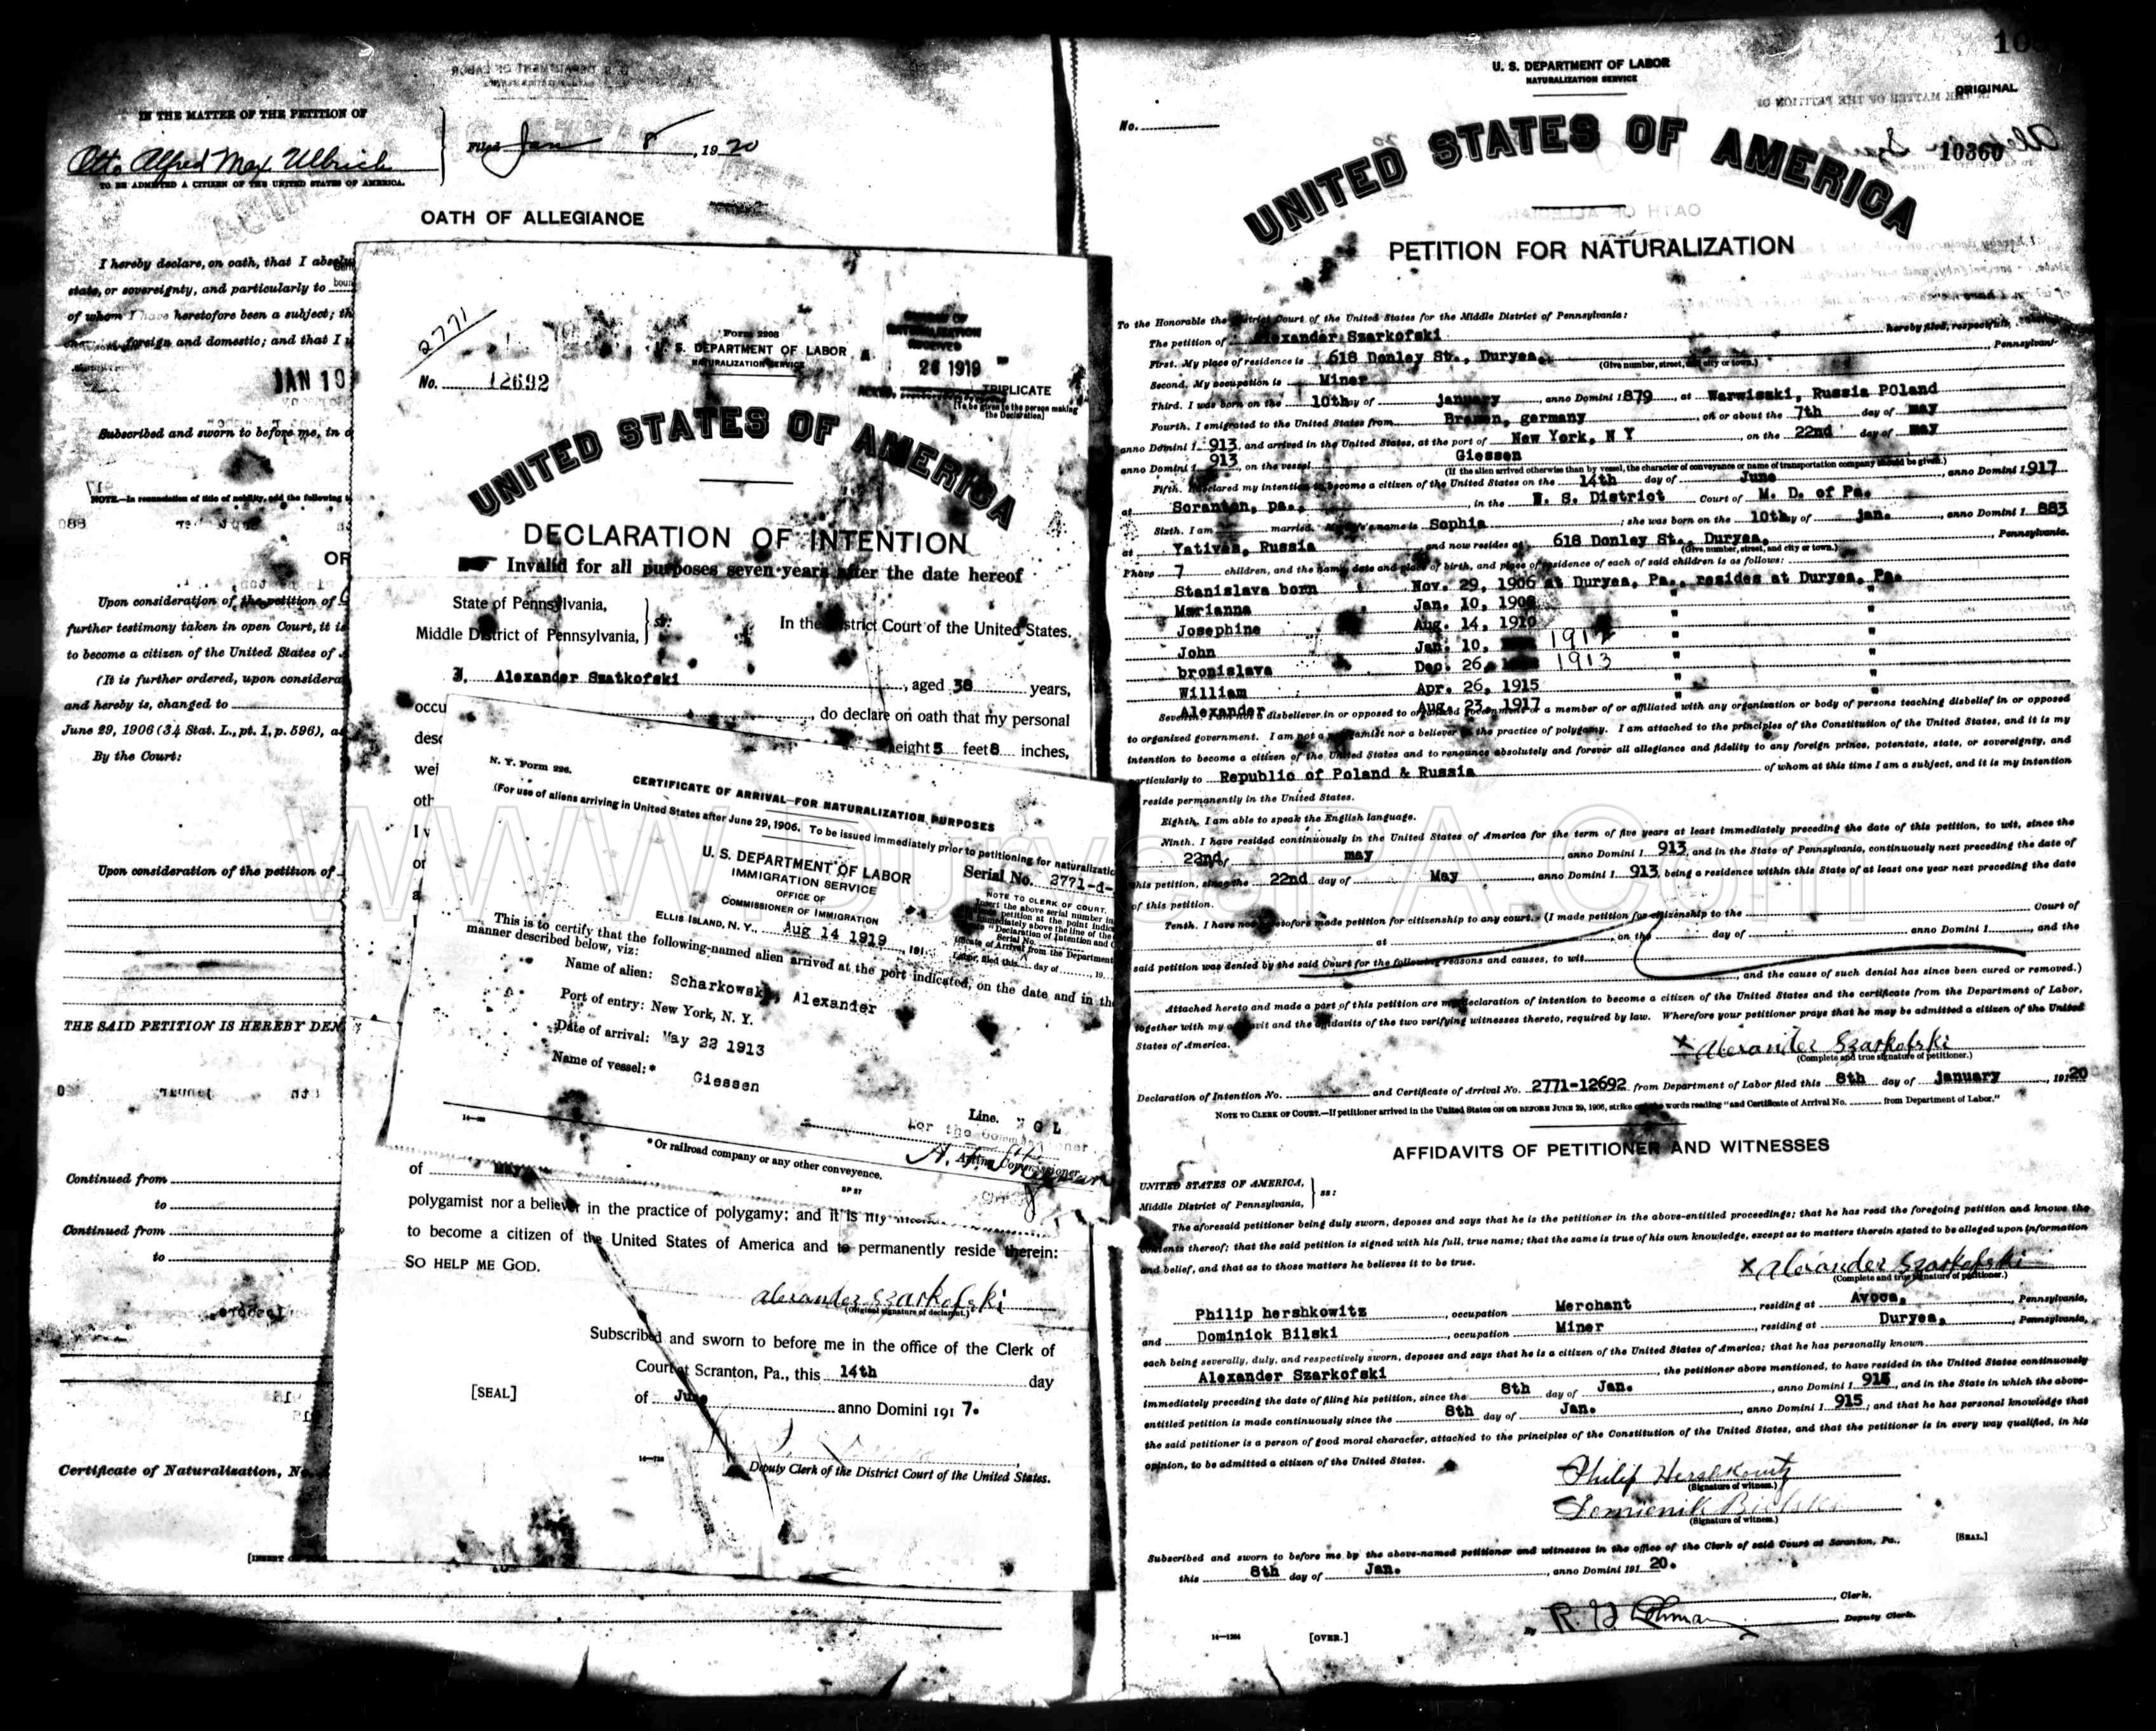 IN THE MATTER OF THE PETITION OF
Otto Alfred Max Ulbrich
TO BE ADMITTED A CITIZEN OF THE UNITED STATES OF AMERICA.
Filed Jan 8, 1920
OATH OF ALLEGIANCE
I hereby declare, on oath, that I
state, or sovereignty, and particularly to
of whom I have heretofore been a subject;
foreign and domestic; and that I
JAN 19
Subscribed and sworn to before me, in
NOTE.—In renunciation of title of nobility, add the following
OR
Upon consideration of the petition of
further testimony taken in open Court, it is
to become a citizen of the United States of
(It is further ordered, upon considera
and hereby is, changed to
June 29, 1906 (34 Stat. L., pt. 1, p. 596),
By the Court:
Upon consideration of the petition of
THE SAID PETITION IS HEREBY DEN
Continued from
to
Continued from
to
Certificate of Naturalization, No.
2771
Form 2203
U. S. DEPARTMENT OF LABOR
NATURALIZATION SERVICE
26 1919
No. 12692
TRIPLICATE
[To be given to the person making the Declaration]
UNITED STATES OF AMERICA
DECLARATION OF INTENTION
Invalid for all purposes seven years after the date hereof
State of Pennsylvania,
Middle District of Pennsylvania,
ss:
In the District Court of the United States.
I, Alexander Szatkofski, aged 38 years,
occu
, do declare on oath that my personal
desc
height 5 feet 8 inches,
wei
oth
I v
or
a
N. Y. Form 226.
CERTIFICATE OF ARRIVAL—FOR NATURALIZATION PURPOSES
(For use of aliens arriving in United States after June 29, 1906. To be issued immediately prior to petitioning for naturalizatio
U. S. DEPARTMENT OF LABOR
IMMIGRATION SERVICE
OFFICE OF
COMMISSIONER OF IMMIGRATION
Serial No. 2771-d-
NOTE TO CLERK OF COURT.
ELLIS ISLAND, N. Y., Aug 14 1919, 191
This is to certify that the following-named alien arrived at the port indicated, on the date and in the
manner described below, viz:
Name of alien: Scharkowski, Alexander
Port of entry: New York, N. Y.
Date of arrival: May 22 1913
Name of vessel:* Giessen
Line. N G L
For the Commissioner
Acting Commissioner
14—
*Or railroad company or any other conveyence.
of May
polygamist nor a believer in the practice of polygamy; and it is my
to become a citizen of the United States of America and to permanently reside therein:
SO HELP ME GOD.
Alexander Szarkofski
(Original signature of declarant.)
Subscribed and sworn to before me in the office of the Clerk of
Court at Scranton, Pa., this 14th day
[SEAL]
of June anno Domini 1917.
Deputy Clerk of the District Court of the United States.
U. S. DEPARTMENT OF LABOR
NATURALIZATION SERVICE
ORIGINAL
No.
10360
UNITED STATES OF AMERICA
PETITION FOR NATURALIZATION
To the Honorable the District Court of the United States for the Middle District of Pennsylvania:
The petition of Alexander Szarkofski hereby filed, respectfully
First. My place of residence is 618 Donley St., Duryea, Pennsylvani
(Give number, street, and city or town.)
Second. My occupation is Miner
Third. I was born on the 10th day of january, anno Domini 1879, at Warwiszki, Russia POland
Fourth. I emigrated to the United States from Bremen, germany on or about the 7th day of may
anno Domini 1 913, and arrived in the United States, at the port of New York, N Y on the 22nd day of may
anno Domini 1 913, on the vessel Giessen
(If the alien arrived otherwise than by vessel, the character of conveyance or name of transportation company should be given.)
Fifth. I declared my intention to become a citizen of the United States on the 14th day of June, anno Domini 1917
at Scranton, pa., in the U. S. District Court of M. D. of Pa.
Sixth. I am married. My wife's name is Sophia; she was born on the 10th day of jan., anno Domini 1 883
at Yatives, Russia and now resides at 618 Donley St., Duryea, Pennsylvania.
(Give number, street, and city or town.)
I have 7 children, and the name, date and place of birth, and place of residence of each of said children is as follows:
Stanislava born Nov. 29, 1906 at Duryea, Pa., resides at Duryea, Pa.
Marianna Jan. 10, 1908 " "
Josephine Aug. 14, 1910 " "
John Jan. 10, 1912 " "
bronislava Dec. 26, 1913 " "
William Apr. 26, 1915 " "
Alexander Aug. 23, 1917
Seventh. I am not a disbeliever in or opposed to organized government or a member of or affiliated with any organization or body of persons teaching disbelief in or opposed
to organized government. I am not a polygamist nor a believer in the practice of polygamy. I am attached to the principles of the Constitution of the United States, and it is my
intention to become a citizen of the United States and to renounce absolutely and forever all allegiance and fidelity to any foreign prince, potentate, state, or sovereignty, and
particularly to Republic of Poland & Russia of whom at this time I am a subject, and it is my intention
reside permanently in the United States.
Eighth. I am able to speak the English language.
Ninth. I have resided continuously in the United States of America for the term of five years at least immediately preceding the date of this petition, to wit, since the
22nd day of may, anno Domini 1 913, and in the State of Pennsylvania, continuously next preceding the date of
this petition, since the 22nd day of May, anno Domini 1 913, being a residence within this State of at least one year next preceding the date
of this petition.
Tenth. I have not heretofore made petition for citizenship to any court. (I made petition for citizenship to the Court of
at , on the day of anno Domini 1 , and the
said petition was denied by the said Court for the following reasons and causes, to wit
, and the cause of such denial has since been cured or removed.)
Attached hereto and made a part of this petition are my declaration of intention to become a citizen of the United States and the certificate from the Department of Labor,
together with my affidavit and the affidavits of the two verifying witnesses thereto, required by law. Wherefore your petitioner prays that he may be admitted a citizen of the United
States of America.
x Alexander Szarkofski
(Complete and true signature of petitioner.)
Declaration of Intention No. and Certificate of Arrival No. 2771-12692 from Department of Labor filed this 8th day of january, 19120
NOTE TO CLERK OF COURT.—If petitioner arrived in the United States ON OR BEFORE JUNE 29, 1906, strike out the words reading "and Certificate of Arrival No. from Department of Labor."
AFFIDAVITS OF PETITIONER AND WITNESSES
UNITED STATES OF AMERICA,
Middle District of Pennsylvania,
ss:
The aforesaid petitioner being duly sworn, deposes and says that he is the petitioner in the above-entitled proceedings; that he has read the foregoing petition and knows the
contents thereof; that the said petition is signed with his full, true name; that the same is true of his own knowledge, except as to matters therein stated to be alleged upon information
and belief, and that as to those matters he believes it to be true.
x Alexander Szarkofski
(Complete and true signature of petitioner.)
Philip hershkowitz, occupation Merchant, residing at Avoca, Pennsylvania,
and Dominick Bilski, occupation Miner, residing at Duryea, Pennsylvania,
each being severally, duly, and respectively sworn, deposes and says that he is a citizen of the United States of America; that he has personally known
Alexander Szarkofski, the petitioner above mentioned, to have resided in the United States continuously
immediately preceding the date of filing his petition, since the 8th day of Jan., anno Domini 1 915, and in the State in which the above-
entitled petition is made continuously since the 8th day of Jan., anno Domini 1 915; and that he has personal knowledge that
the said petitioner is a person of good moral character, attached to the principles of the Constitution of the United States, and that the petitioner is in every way qualified, in his
opinion, to be admitted a citizen of the United States.
Philip Hershkowitz
(Signature of witness.)
Domienik Bielski
(Signature of witness.)
Subscribed and sworn to before me by the above-named petitioner and witnesses in the office of the Clerk of said Court at Scranton, Pa.,
[SEAL.]
this 8th day of Jan., anno Domini 191 20.
, Clerk.
By , Deputy Clerk.
[OVER.]
www.DuryeaPA.com